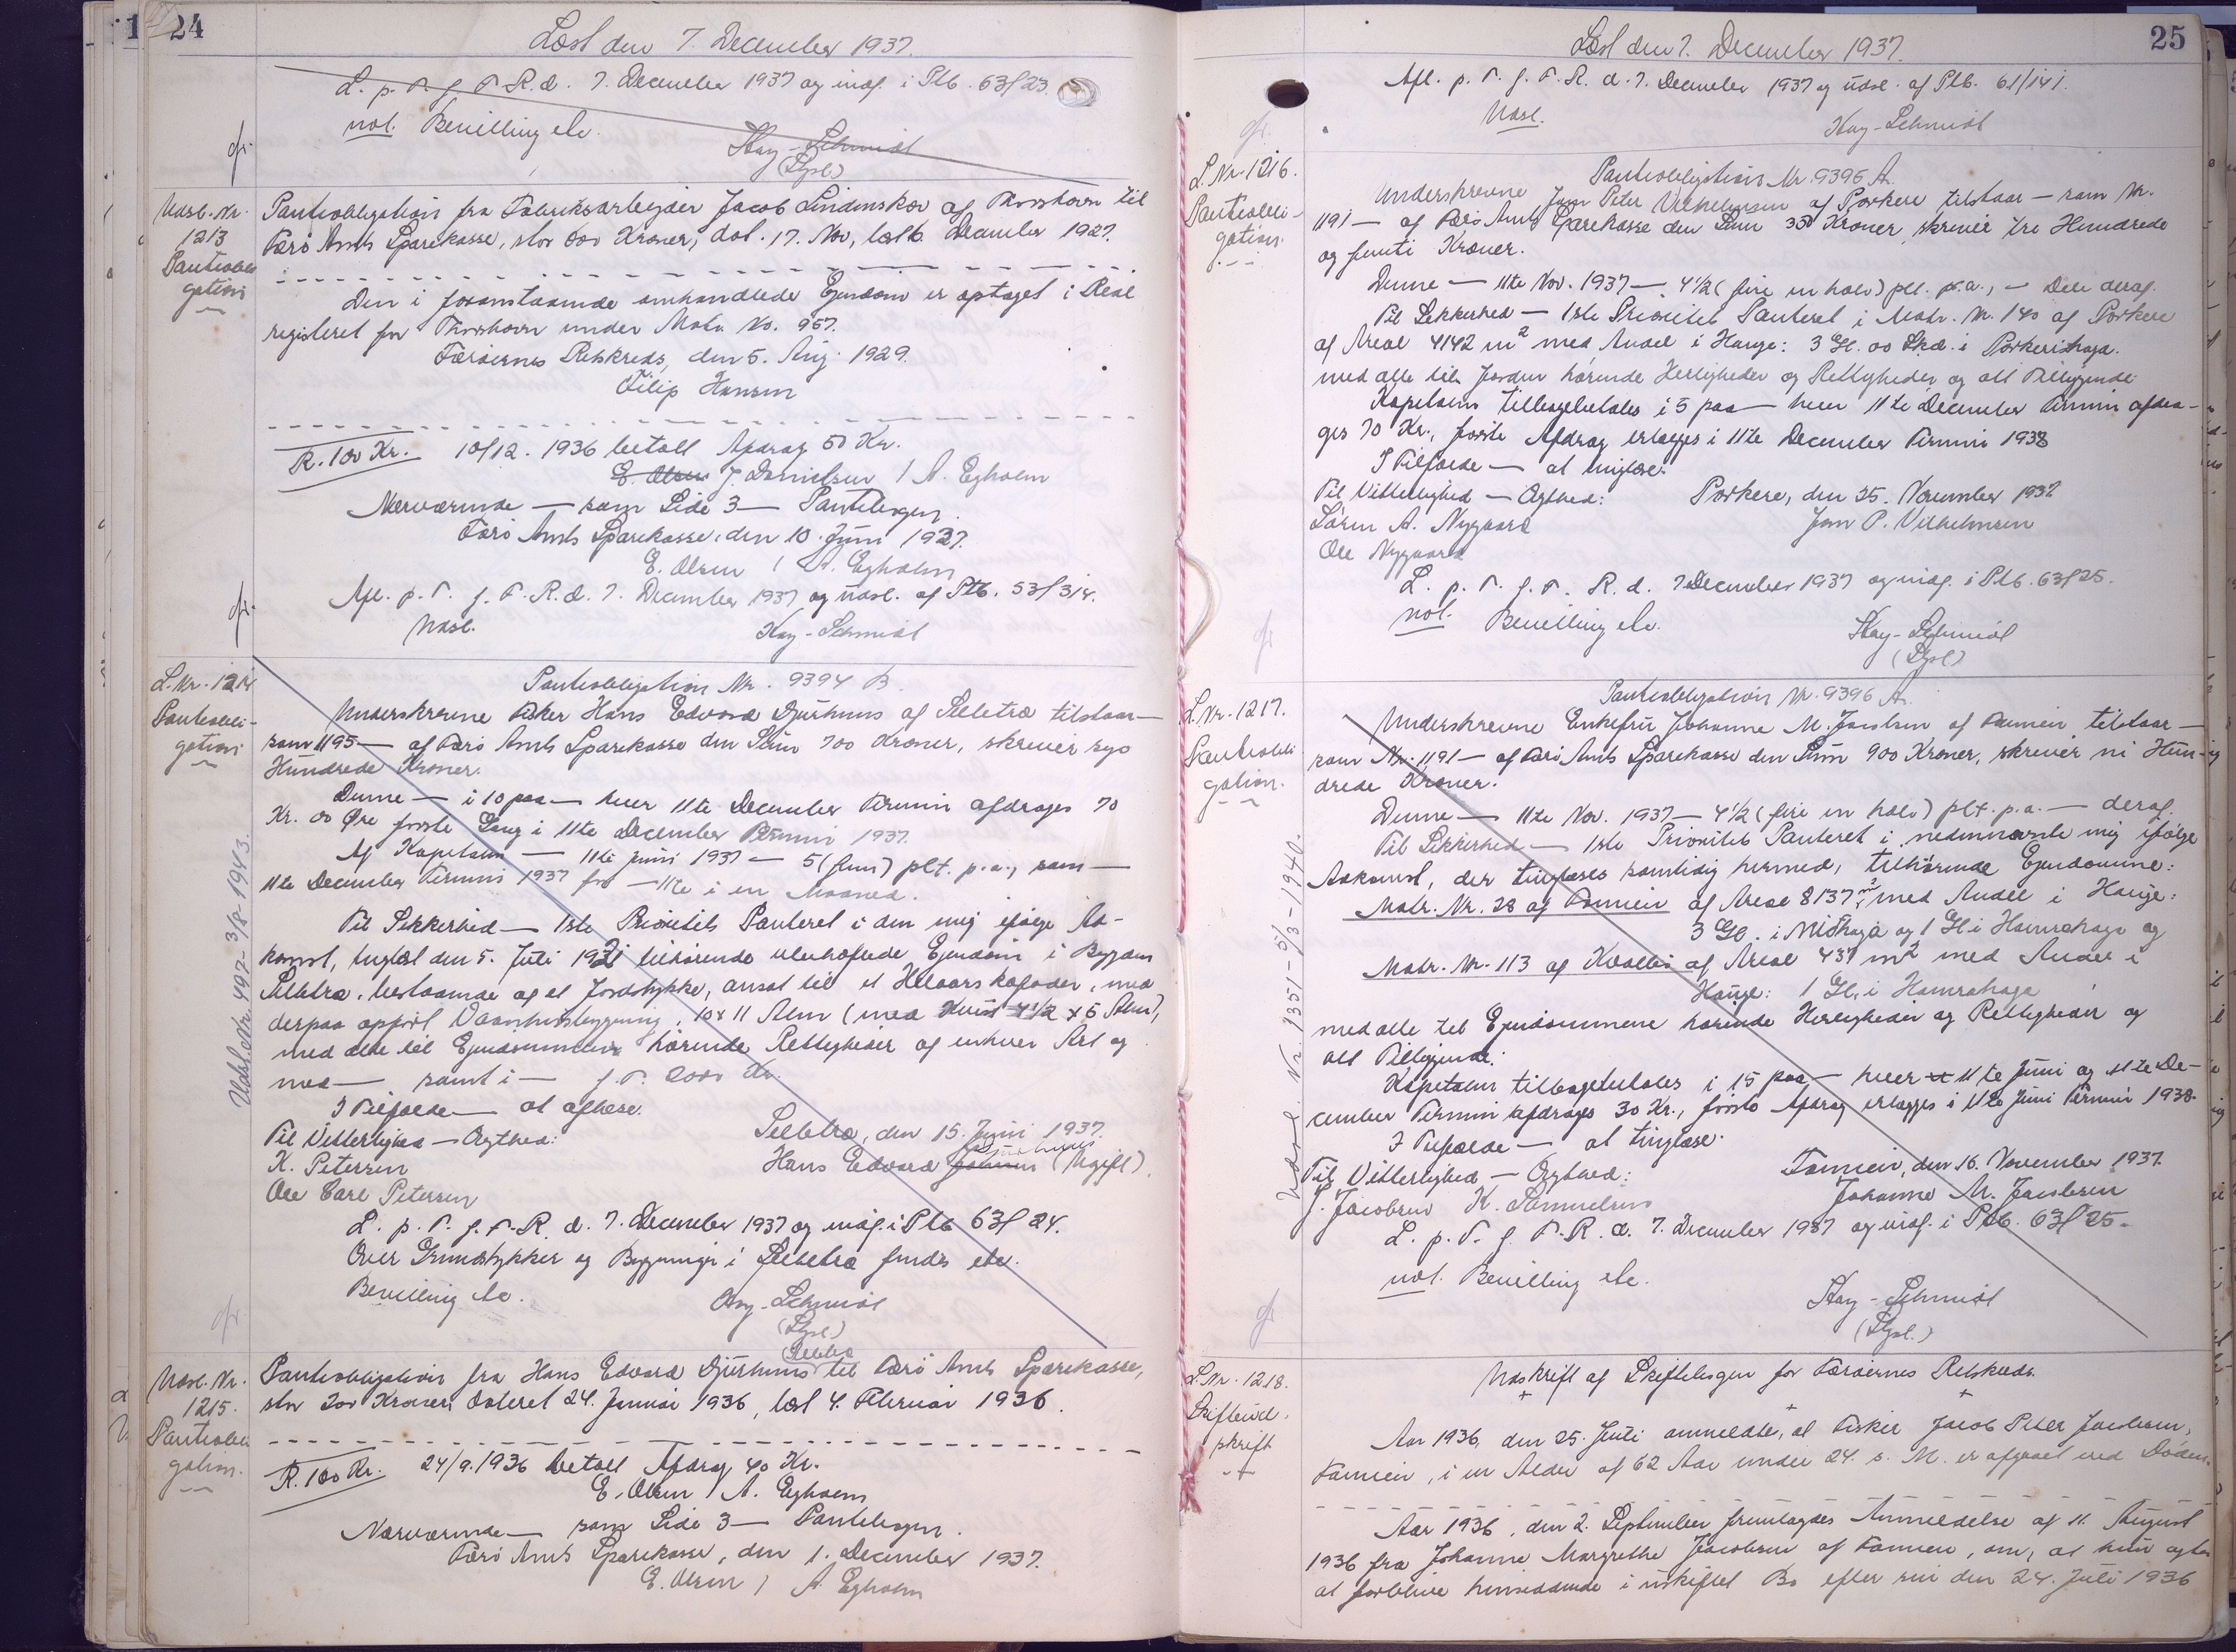 24
Læst den 7. December 1937.
L. p. T. f. F. R. d. 7. December 1937 og indf. i Ptb. 63f23.
not. Bevilling etc.
Kay-Schmidt
(Lysl)
cfr.
Udsl. Nr.
1213
Pantobli
gation
Pantobligation fra Fabriksarbejder Jacob Lindenskov af Thorshavn til
Færø Amts Sparekasse, stor 800 Kroner, dat. 17. Nov, læst 6. December 1927.
Den i foranstaaende omhandlede Ejendom er optaget i Real
registeret for Thorshavn under Matr. No. 957.
Færøernes Retskreds, den 5. Aug. 1929.
Filip Hansen
R. 100 Kr. 10/12. 1936 betalt Afdrag 50 Kr.
E. Olsen J. Danielsen / A. Egholm
Nærværende — som Side 3 — Pantebogen.
Færø Amts Sparekasse, den 10. Juni 1937.
E. Olsen / A. Egholm
Afl. p. T. f. F. R. d. 7. December 1937 og udsl. af Ptb. 53f314.
Udsl.
Kay-Schmidt
cfr.
L. Nr. 1214
Pantobli-
gation
Udsl. Nr. 492-3/8-1943.
Pantobligation Nr. 9394 B.
Underskrevne Fisker Hans Edvard Djurhuus af Selletræ tilstaar —
som 1195 — af Færø Amts Sparekasse den Sum 700 Kroner, skriver syv
Hundrede Kroner.
Denne — i 10 paa — hver 11te December Termin afdrages 70
Kr. 00 Øre første Gang i 11te December Termin 1937.
Af Kapitalen — 11te Juni 1937 — 5 (fem) pCt. p.a., som —
11te December Termin 1937 for — 11te i en Maaned.
Til Sikkerhed — 1ste Prioritets Panteret i den mig ifølge Ad-
komst, tinglæst den 5. Juli 1921 tilhørende ubehæftede Ejendom i Bygden
Selletræ, bestaaende af et Jordstykke, ansat til et Helaars kofoder, med
derpaa opført Vaaningsbygning, 10 x 11 Alen (med Kvist 4 1/2 x 5 Alen),
med alle til Ejendommen hørende Rettigheder af enhver Art og
med — samt i — f. T. 2000 Kr.
I Tilfælde — at aflæse.
Til Vitterlighed — Ægthed:
Selletræ, den 15. Juni 1937.
K. Petersen
Djurhuus
Hans Edvard (Ugift).
Ole Carl Petersen
L. p. T. f. F. R. d. 7. December 1937 og indf. i Ptb 63f 24.
Over Grundstykker og Bygninger i Selletræ findes etc.
Bevilling etc.
Kay-Schmidt
(Lysl)
cfr.
Udsl. Nr.
1215.
Pantobli
gation.
Pantobligation fra Hans Edvard Djurhuus (Selletræ) til Færø Amts Sparekasse,
stor 200 Kroner, dateret 24. Januar 1936, læst 4. Februar 1936.
R. 100 Kr. 24/9. 1936 betalt Afdrag 40 Kr.
E. Olsen / A. Egholm
Nærværende — som Side 3 — Pantebogen.
Færø Amts Sparekasse, den 1. December 1937.
E. Olsen / A. Egholm
25
Læst den 7. December 1937.
Afl. p. T. f. F. R. d. 7. December 1937 og udsl. af Ptb. 61/141.
Udsl.
Kay-Schmidt
cfr.
L. Nr. 1216.
Pantobli-
gation.
Pantobligation Nr. 9395 A.
Underskrevne Jon Peter Vilhelmsen af Porkere tilstaar — som Nr.
1191 — af Færø Amts Sparekasse den Sum 350 Kroner, skriver tre Hundrede
og femti Kroner.
Denne — 11te Nov. 1937 — 4 1/2 (fire en halv) pCt. p.a., — Dele deraf.
Til Sikkerhed — 1ste Prioritets Panteret i Matr. Nr. 140 af Porkere
af Areal 4142 m2 med Andel i Hauge: 3 Gl. 00 Skd. i Porkerishaga.
med alle til Jorden hørende Herligheder og Rettigheder og alt Tilliggende
Kapitalen tilbagebetales i 5 paa — hver 11te December Termin afdra-
ges 70 Kr., første Afdrag erlægges i 11te December Termin 1938
I Tilfælde — at tinglæse.
Til Vitterlighed — Ægthed:
Porkere, den 25. November 1937
Søren A. Nygaard
Jon P. Vilhelmsen
Ole Nygaard
L. p. T. f. F. R. d. 7. December 1937 og indf. i Ptb. 63f25.
not. Bevilling etc.
Kay-Schmidt
(Lysl)
cfr
L. Nr. 1217.
Pantobli
gation.
Udsl. Nr. 1351-5/3-1940.
Pantobligation Nr. 9396 A.
Underskrevne Enkefru Johanne M. Jacobsen af Famien tilstaar —
som Nr. 1191 — af Færø Amts Sparekasse den Sum 900 Kroner, skriver ni Hun-
drede Kroner.
Denne — 11te Nov. 1937 — 4 1/2 (fire en halv) pCt. p.a. — deraf.
Til Sikkerhed — 1ste Prioritets Panteret i nedennævnte mig ifølge
Adkomst, der tinglæses samtidig hermed, tilhørende Ejendomme:
Matr. Nr. 28 af Famien af Areal 8137 m2, med Andel i Hauge:
3 Gl. i Niðrhaga og 1 Gl. i Hamrahaga og
Matr. Nr. 113 af Kvalbø af Areal 437 m2 med Andel i
Hauge: 1 Gl. i Hamrahaga
med alle til Ejendommene hørende Herligheder og Rettigheder og
alt Tilliggende.
Kapitalen tilbagebetales i 15 paa — hver 11te Juni og 11te De-
cember Termin afdrages 30 Kr., første Afdrag erlægges i 11te Juni Termin 1938.
I Tilfælde — at tinglæse.
Til Vitterlighed — Ægthed:
Famien, den 16. November 1937.
J. Jacobsen K. Samuelsen
Johanne M. Jacobsen
L. p. T. f. F. R. d. 7. December 1937 og indf. i Ptb. 63f25.
not. Bevilling etc.
Kay-Schmidt
(Lysl.)
cfr
L. Nr. 1218.
Skifteud-
skrift
Udskrift af Skiftebogen for Færøernes Retskreds.
Aar 1936, den 25. Juli anmeldte, at Fisker Jacob Peter Jacobsen,
Famien, i en Alder af 62 Aar under 24. s. M. er afgaaet ved Døden.
Aar 1936, den 2. September fremlagdes Anmeldelse af 11. August
1936 fra Johanne Margrethe Jacobsen af Famien, om, at hun agter
at forblive hensiddende i uskiftet Bo efter sin den 24. Juli 1936